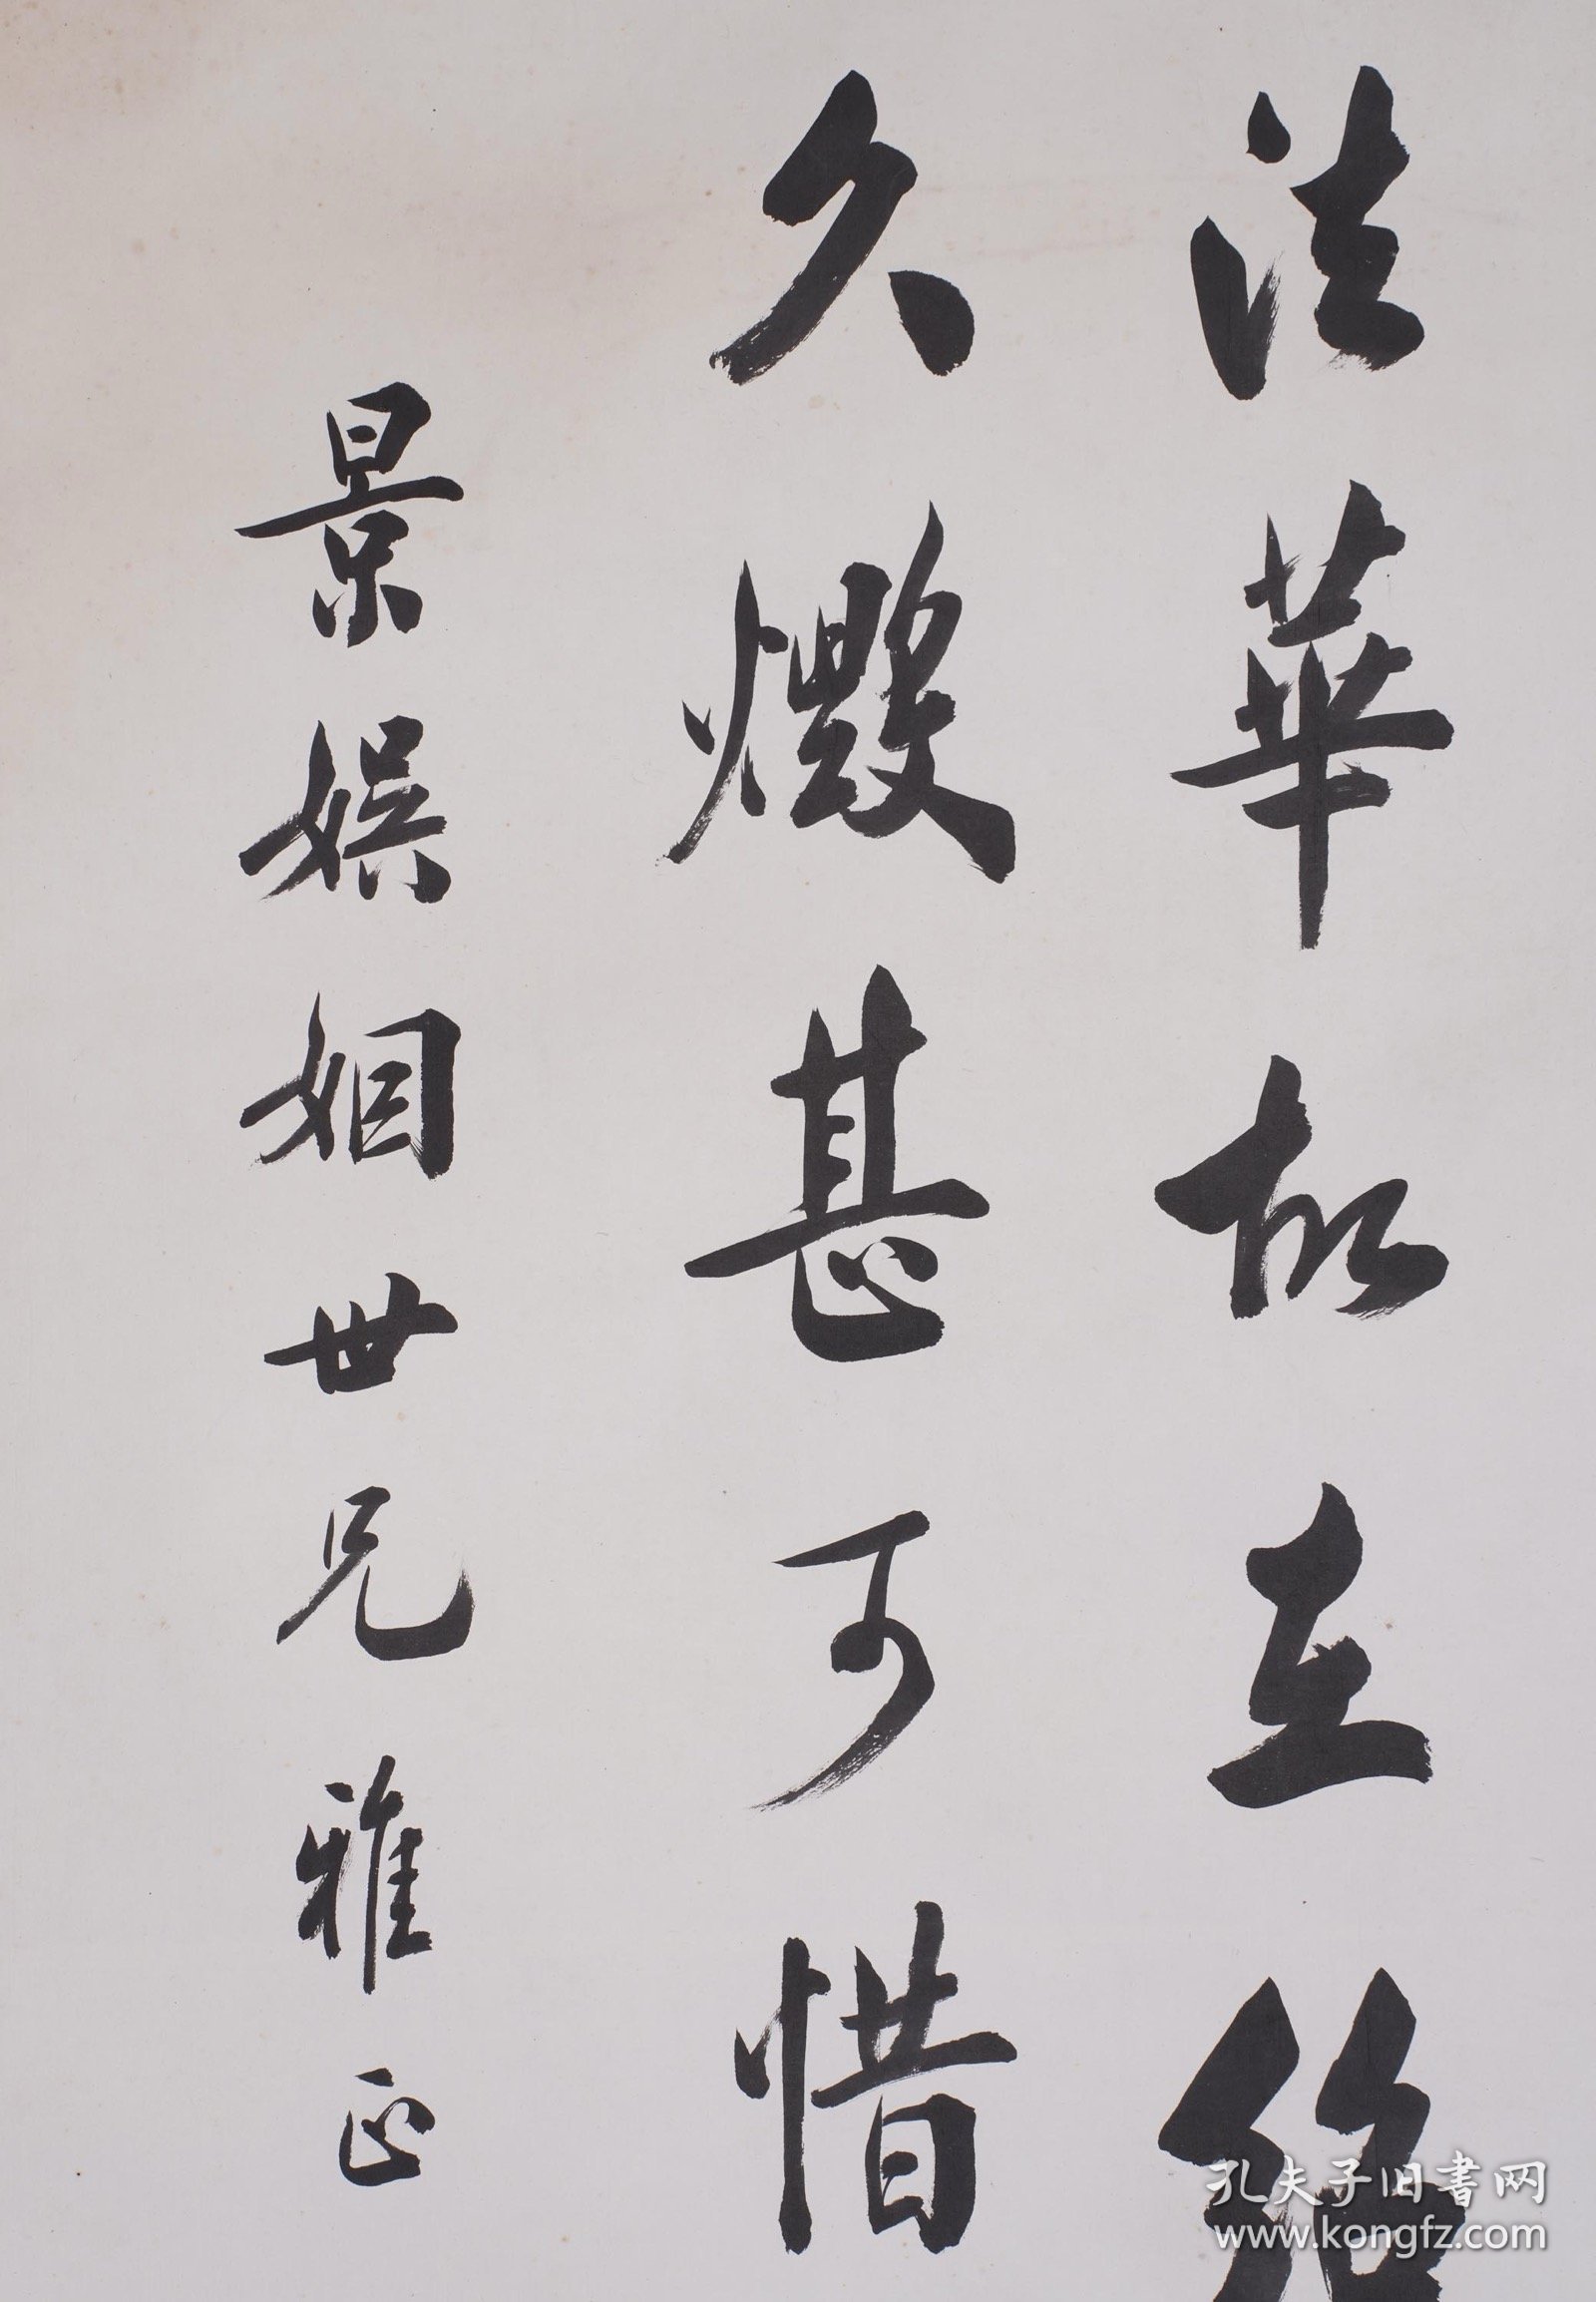 法華故立絶
久燬甚可惜
景娱姻世兄雅正
孔夫子旧書网
www.kongfz.com